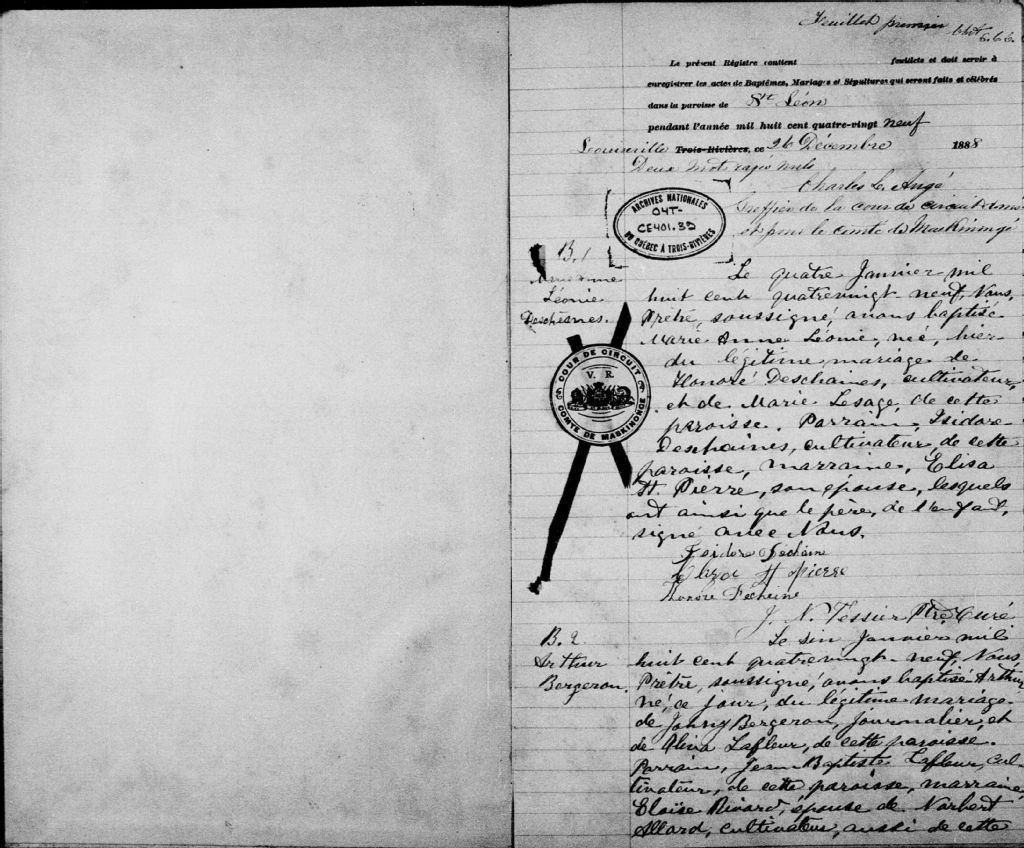 Feuillet premier
C.L.C.
Le présent Régistre contient feuillets et doit servir à
enregistrer les actes de Baptêmes, Mariages et Sépultures qui seront faits et célébrés
dans la paroisse de St Léon
pendant l'année mil huit cent quatre-vingt neuf
Louiseville Trois-Rivières, ce 26 Décembre 1888
Deux mots rayés nuls
Charles L. Angé
Greffier de la cour de circuit dans
et pour le comté de Maskinongé
ARCHIVES NATIONALES
04T-
CE401.39
DU QUÉBEC À TROIS-RIVIÈRES
B. 1
Anne
Léonie
Deschesnes.
Le quatre Janvier mil
huit cent quatrevingt neuf, Nous,
Prêtre, soussigné, avons baptisé
Marie Anne Léonie, née, hier
du légitime mariage de
Honoré Deschaines, cultivateur,
et de Marie Lesage, de cette
paroisse. Parrain, Isidore
Deschaines, cultivateur, de cette
paroisse, marraine, Elisa
St. Pierre, son épouse, lesquels
ont ainsi que le père, de l'enfant,
signé avec Nous.
COUR DE CIRCUIT
V. R.
COMTÉ DE MASKINONGE
Isidore Déchêne
Eliza St pierre
Honoré Decheine
J. N. Tessier Ptre Curé
B. 2
Arthur
Bergeron.
Le six Janvier mil
huit cent quatrevingt-neuf, Nous
Prêtre, soussigné, avons baptisé Arthur
né, ce jour, du légitime mariage
de Johny Bergeron, journalier, et
de Oliva Lafleur, de cette paroisse.
Parrain, Jean Baptiste Lafleur, cul-
tivateur, de cette paroisse, marraine
Eloïse Rivard, épouse de Norbert
Allard, cultivateur, aussi de cette